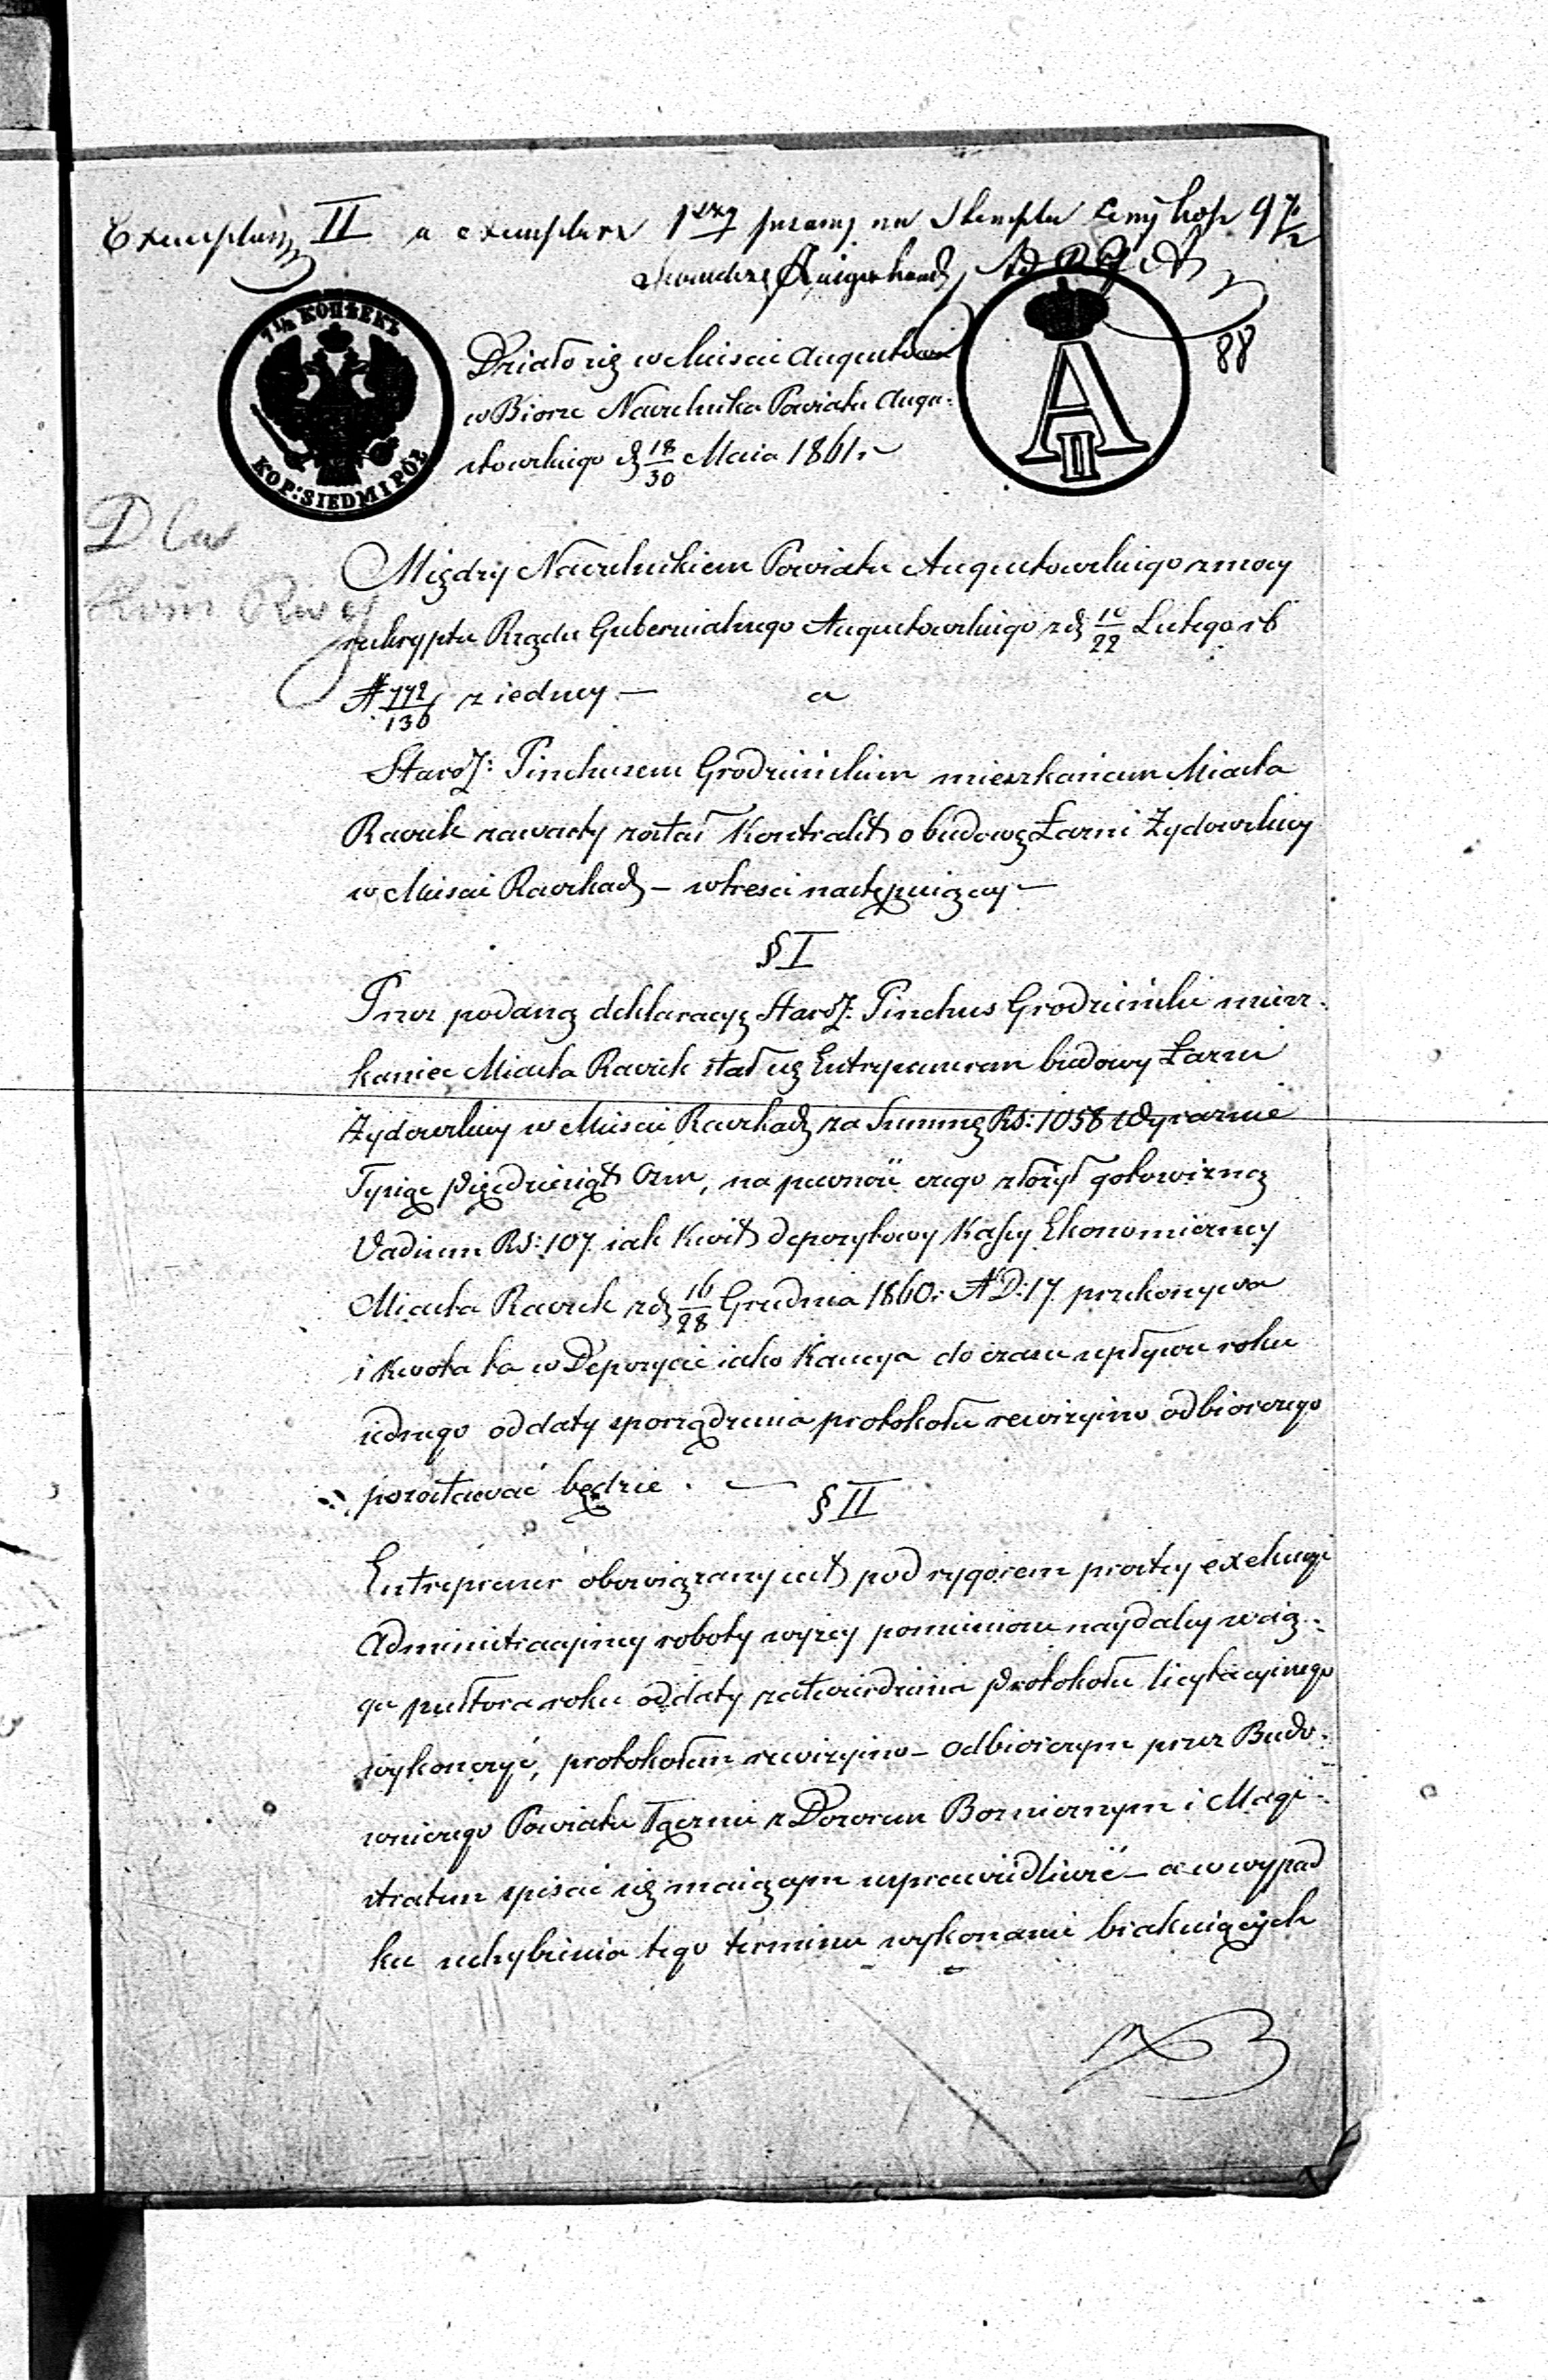 Exemplarz II a exemplarz 1szy pisany na Stemplu ceny kop 97½
7½ КОПѢЕКЪ
KOP: SIEDM I PÓŁ
A II
88
Działo się w Mieście Augustowie
w Biorze Naczelnika Powiatu Augu-
stowskiego d. 18/30 Maia 1861 r
Dla
Kom Rzą
Między Naczelnikiem Powiatu Augustowskiego z mocy
reskryptu Rządu Gubernialnego Augustowskiego z d. 10/22 Lutego r b
N 772/136 z iedney — a
Staroz: Pinchusem Grodzieńskim mieszkańcem Miasta
Raczek zawarty został Kontrakt o budowę Łazni Żydowskiey
w Mieście Raczkach – w treści następuiącey —
§ I
Przez podaną deklaracyę Staroz: Pinchus Grodzieński miesz-
kaniec Miasta Raczek stał się Entreprenerem budowy Łazni
Żydowskiey w Mieście Raczkach za Summę Rs: 1058 Wyraźnie
Tysiąc pięćdziesiąt Osm, na pewność czego złożył gotowizną
Vadium Rs: 107 iak Kwit depozytowy Kassy Ekonomiczney
Miasta Raczek z d. 16/28 Grudnia 1860 r N D: 17 przekonywa
i kwota ta w Depozycie iako Kaucya do czasu upływu roku
iednego od daty sporządzenia protokołu rewizyino odbiorczego
pozostawać będzie. — § II
Entreprener obowiązany iest pod rygorem prostey exekucyi
Administracyiney roboty wyżey pomienione naydaley w cią-
gu pułtora roku od daty zatwierdzenia protokołu licytacyinego
wykończyć, protokołem rewizyino – odbiorczym przez Budo-
wniczego Powiatu łącznie z Dozorem Bożniczym i Magi-
stratem spisać się maiącym usprawiedliwić – a w wypad
ku uchybienia tego terminu wykonanie brakuiących